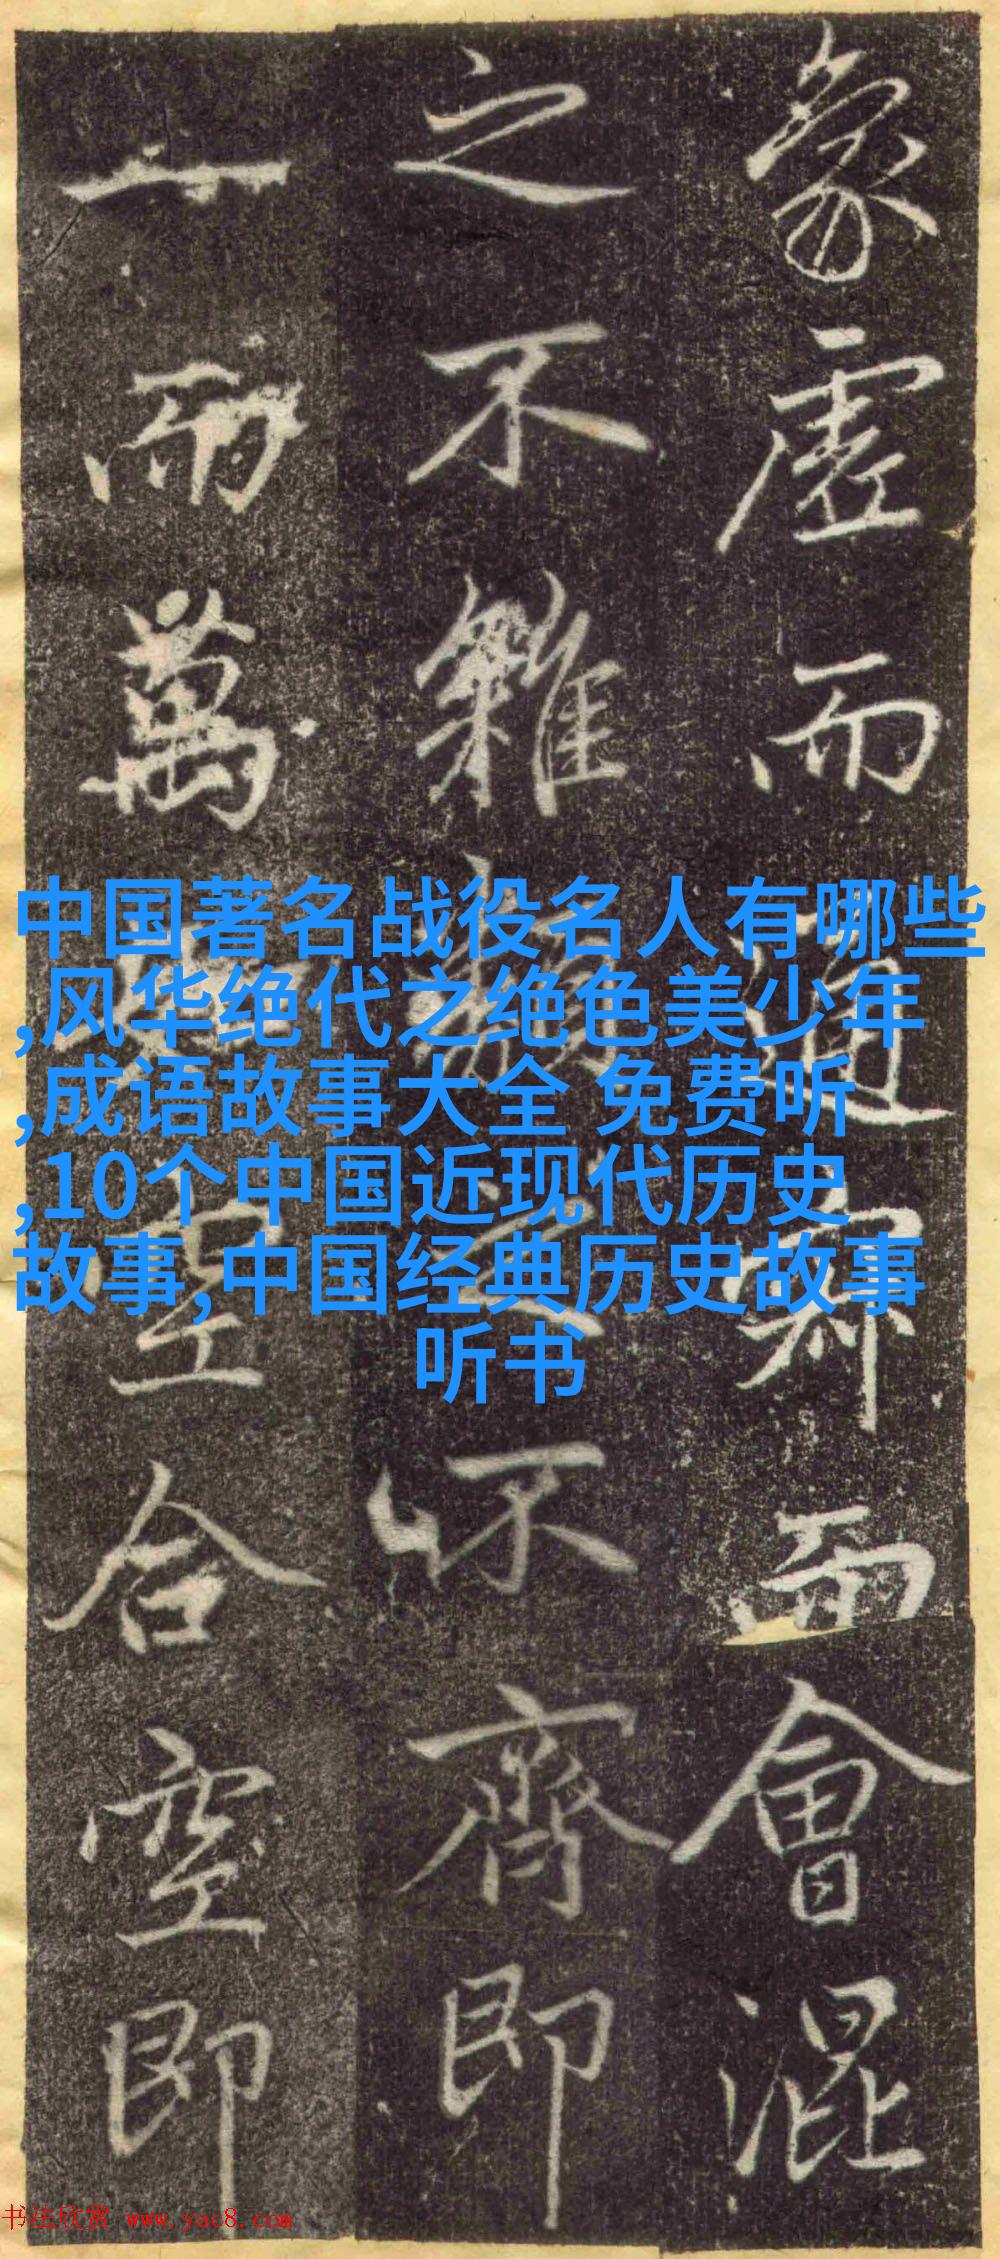 象虛而通而會混
之不雜之不齊即
一而萬空合空即
中国著名战役名人有哪些
,风华绝代之绝色美少年
,成语故事大全 免费听
,10个中国近现代历史
故事,中国经典历史故事
听书
书法欣赏 www.yac8.com